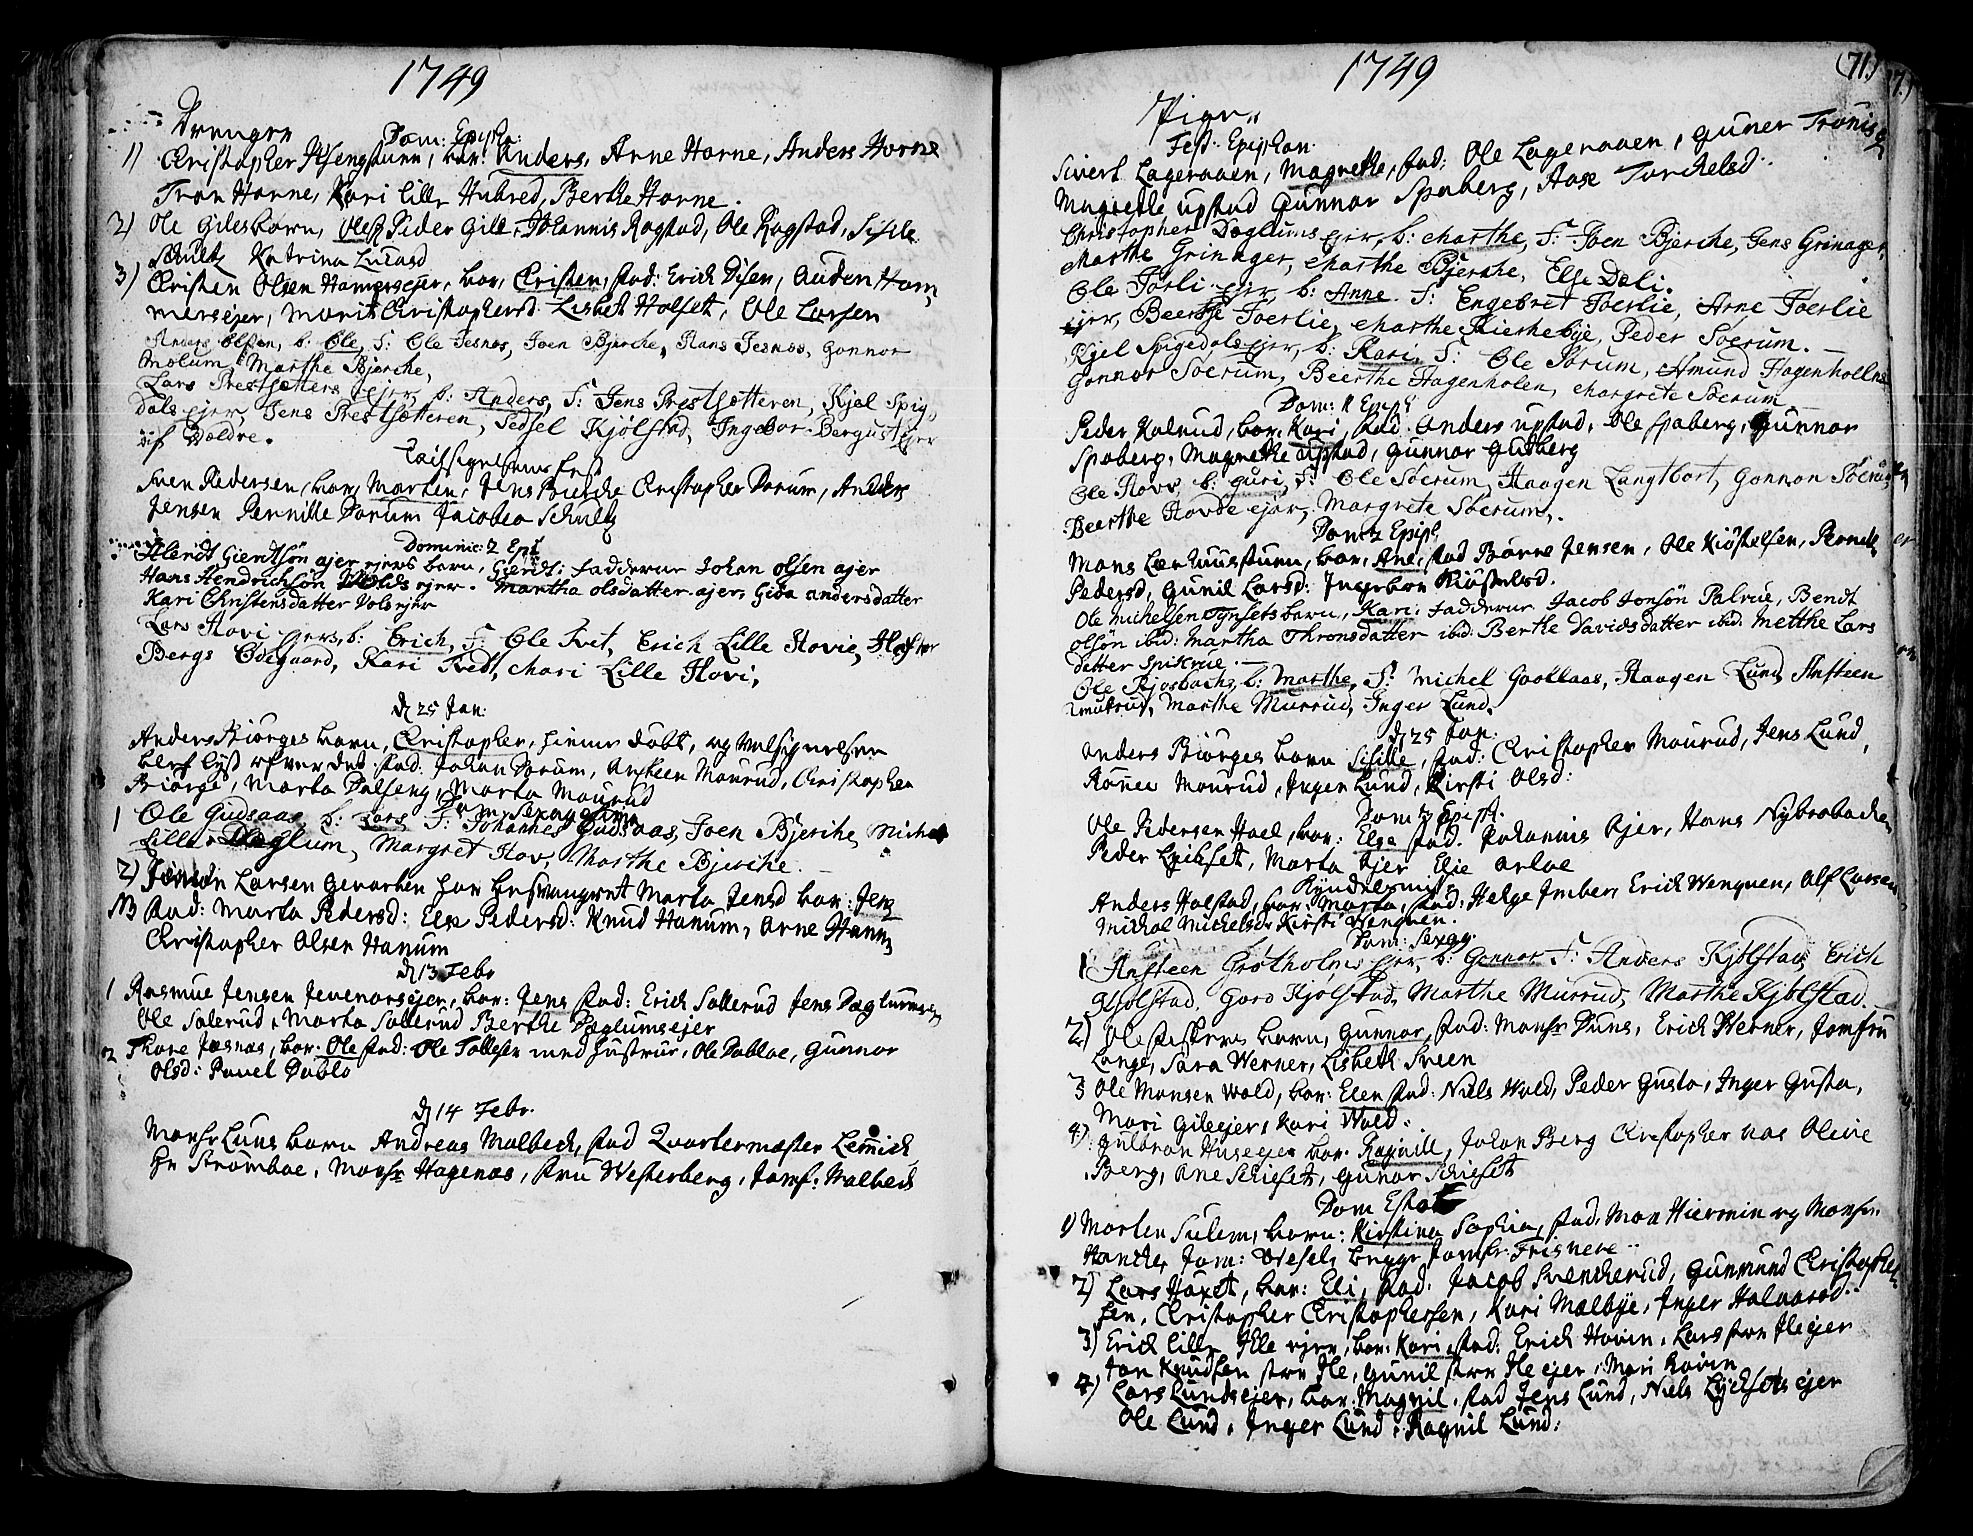 1749
Drenge
Dom: Epipha:
1) Christopher Ihsengstuen, bar: Anders, Arne Horne, Anders Horne
Tron Horne, Kari lille Hubred, Berthe Horne.
2) Ole Gilesbarn, Ole, Peder Gille, Johannis Rogstad, Ole Rogstad, Sisile
Schultz Katrina Lucasd
3) Christen Olsen Hamersejer, bar, Christen, fad: Erick Disen, Auden Ham
mersejer, Marit Christophersd Lisbet Holset, Ole Larsen
Anders Olsen, b: Ole, F: Ole Jesnes, Joen Bjerche, Hans Jesnes, Gonnor
Molum, Marthe Bjerche,
Lars Prestsætters ejer, b: Anders, F: Jens Prestsætteren, Kjel Spig,
dals ejer, Jens Prestsætteren, Sedsel Kjølstad, Ingebor Bergust ejer
Doldre.
Sven Pedersen, bar, Morten, Jens Bierche Christopher Dorum, Anders
Jensen Pernille Dorum Jacobea Schultz
Dominic: 2 Epi
Arendt Gierdtsøn ajer ejers barn, Gierdt: fadderne Johan olsen ajer
Hans Hendrichsøn Volds ejer. Martha olsdatter ajer, Gida andersdatter
Kari Christensdatter Volsejer
Lars Hovi ejers, b: Erich, F: Ole Tvet, Erich Lille Hovie,
Bergs Ødegaard, Kari Tvedt, Mari Lille Hovi,
d 25 Jan:
Anders Biørges barn, Christopher, hieme døbt, og velsignelsen
lyst ofver det. fad: Johan Dorum, Ansteen Mourud, Christopher
Biørge, Marta Dalseng, Marta Mourud
Dom: Sexagesima
1 Ole Gudsaas, b: Lars F: Johannes Gudsaas, Joen Bjerche, Michel
Lille Døglum, Margret Hov, Marthe Bjerche.
2) Larsen Gevorben har besvangret Marta Jensd bar: Jens
NB fad: Marta Pedersd: Else Pedersd: Knud Hanum, Arne Hanum
Christopher Olsen Hanum
d 13 Febr
1 Rasmus Jensen Jevenorsejer, bar: Jens fad: Erick Sollerud Jens Døglumsejer
Ole Solerud, Marta Sollerud Berthe Døglumsejer
2 Thore Jesnes, bar: Ole fad: Ole Tollefsen med hustrue, Ole Dobloe, Gunnor
Olsd: Pavel Doblo
d 14 Febr.
Monsr Luns barn Andreas Malbeck, fad Qvartermester Lemmick
Hr Strømboe, Monsr Hagenas, fru Westerberg, Jomf: Malbeck
1749
(71.)
Piger
Fest. Epiphan.
Siverl Lageraaen, Magrethe, fad: Ole Lageraaen, Guner Tronis
Magrethe upstad Gunnor Spaberg, Aase Torchelsd.
Christopher Døglums ejer, b: Marthe, F: Joen Bjerche, Jens Grinager,
Marthe Grinager, Marthe Bjerche, Else Dæli.
Ole Jorli ejer, b: Anne. F: Engebret Joerlie, Arne Joerlie
ejer, Beerthe Joerlie, Marthe Kierkebye, Peder Soerum.
Kjel Spigedals ejer, b: Kari, F: Ole Sorum, Amund Hagenholen
Gonnor Soerum, Beerthe Hagenholen, Margrete Soerum
Dom: 1 Epiph
Peder Kalrud, bar, Kari, fad. Anders upstad, Ole Spaberg, Gunnor
Spaberg, Magrethe upstad, Gunnor Gudberg
Ole Hovs, b: guri, F: Ole Soerum, Haagen Langtbort, Gonnor Soerum
Beerthe Hovde ejer, Margrete Soerum.
Dom 2 Epiph
Mons Lærhuustuen, bar, Ane, fad Børre Jensen, Ole Kiøstelsen, Pernille
Pedersd, Gunil Larsd: Ingebor Kiøstelsd.
Ole Michelsen Tynsets barn, Kari: fadderne Jacob Jonsøn Palrue, Bendt
olsøn ibid: Martha Thronsdatter ibid: Berthe Davidsdatter ibid: Metthe Lars
datter Spikrue.
Ole Kjosbachs, b: Marthe, F: Michel Gaaklaas, Haagen Lund, Ansteen
Murrud, Marthe Murrud, Inger Lund.
d 25 Jan:
Anders Biørges barn Sisille, fad: Christopher Mourud, Jens Lund,
Ronne Mourud, Inger Lund, Kirsti Olsd:
Dom 3 Epiph.
Ole Pedersen Hoel, bar: Else fad. Johannis Ajer, Hans Nybrobachen
Peder Lykset, Marta Ajer Elie Orloe
Kyndelsmis
Anders Holstad, bar: Marta, fad: Helge Imber, Erick Wenguen, Olf Larsen
Michol Michelsd: Kirsti Wenguen.
Dom: Sexag.
1 Ansteen Grøtholms ejer, b: Gonnor F: Anders Kjølstad, Erich
Kjølstad, Goro Kjølstad, Marthe Murrud, Marthe Kjølstad.
2) Ole barn, Gunnor, fad: Monsr Duns, Erick Werner, Jomfru
Lange, Sara Werner, Lisbeth Sveen
3 Ole Monsen Wold, bar: Elen fad: Niels Wold, Peder Gusta, Inger Gusta,
Mari Gileejer, Kari Wold.
4) Gulbran Husejer bar. Ragnill, Johan Berg Christopher aas Olive
Berg, Ane Schieset, Gunor Schieset
Dom Esto
1) Morten Sulem, barn: Kirstina Sophia, fad, Mon Hiermin og Monsr.
Hanche, Jom: Wesel, begge Jomfr: Frisnere
2) Lars Hoxet, bar: Eli, fad: Jacob Svencherud, Gunmund Christopher
sen, Christopher Christophersen, Kari Mælbye, Inger Halvorsd.
3) Erick lille Ile ejer, bar: Kari, fad: Erick Hovin, Lars store Ile ejer
Jon Knudsen store Ile, Gunil store Ile ejer, Mari Hovin
4) Lars Lundsejer, bar: Magnil, fad Jens Lund, Niels Lychsetsejer
Ole Lund, Inger Lund, Ragnil Lund: